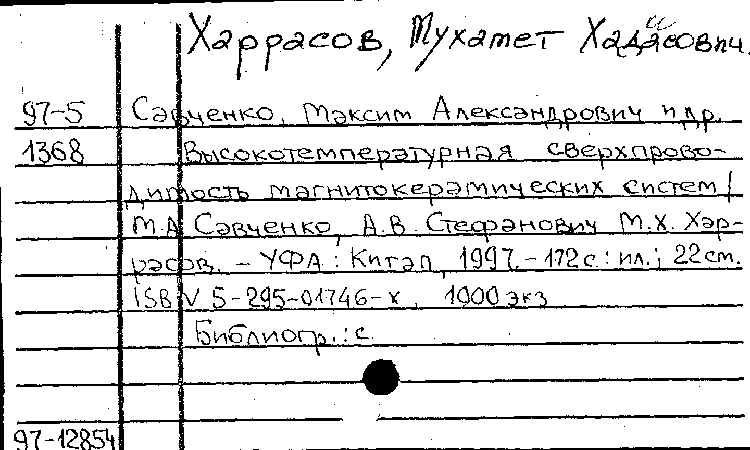 Харрасов, Мухамет Хадисович.
97-5 Савченко, Максим Александрович и др.
1368 Высокотемпературная сверхпрово-
димость магнитокерамических систем /
М.А. Савченко, А.В. Стефанович М.Х. Хар-
расов. - УФА: Китап, 1997. - 172 с.: ил.; 22 см.
ISBN 5-295-01746-х. 1000 экз
Библиогр.: с.
97-12854